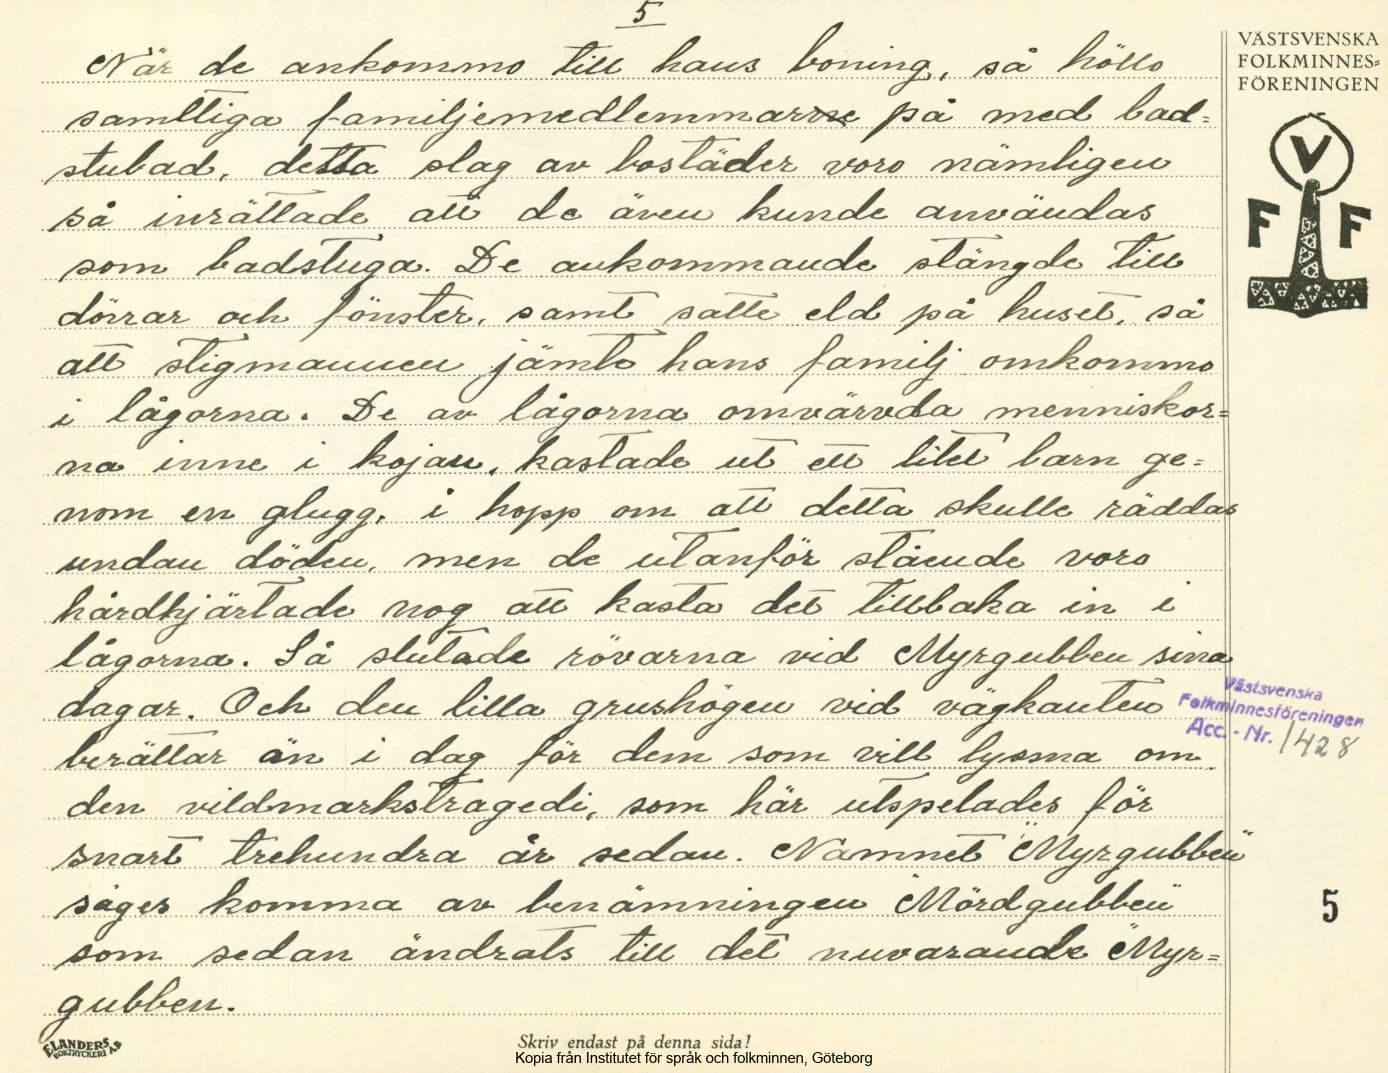 5
När de ankommo till hans boning, så höllo
samtliga familjemedlemmarne på med bad=
stubad, detta slag av bostäder voro nämligen
så inrättade att de även kunde användas
som badstuga. De ankommande stängde till
dörrar och fönster, samt satte eld på huset, så
att stigmannen jämte hans familj omkommo
i lågorna. De av lågorna omvärvda menniskor=
na inne i kojan, kastade ut ett litet barn ge=
nom en glugg, i hopp om att detta skulle räddas
undan döden, men de utanför stående voro
hårdhjärtade nog att kasta det tillbaka in i
lågorna. Så slutade rövarna vid Myrgubben sina
dagar. Och den lilla grushögen vid vägkanten
berättar än i dag för dem som vill lyssna om
den vildmarkstragedi, som här utspelades för
snart trehundra år sedan. Namnet "Myrgubben"
säges komma av benämningen "Mördgubben"
som sedan ändrats till det nuvarande "Myr=
gubben.
VÄSTSVENSKA
FOLKMINNES=
FÖRENINGEN
V
F F
Västsvenska
Folkminnesföreningen
Acc. - Nr. 1428
5
ELANDERS
BOKTRYCKERI AB
Skriv endast på denna sida!
Kopia från Institutet för språk och folkminnen, Göteborg